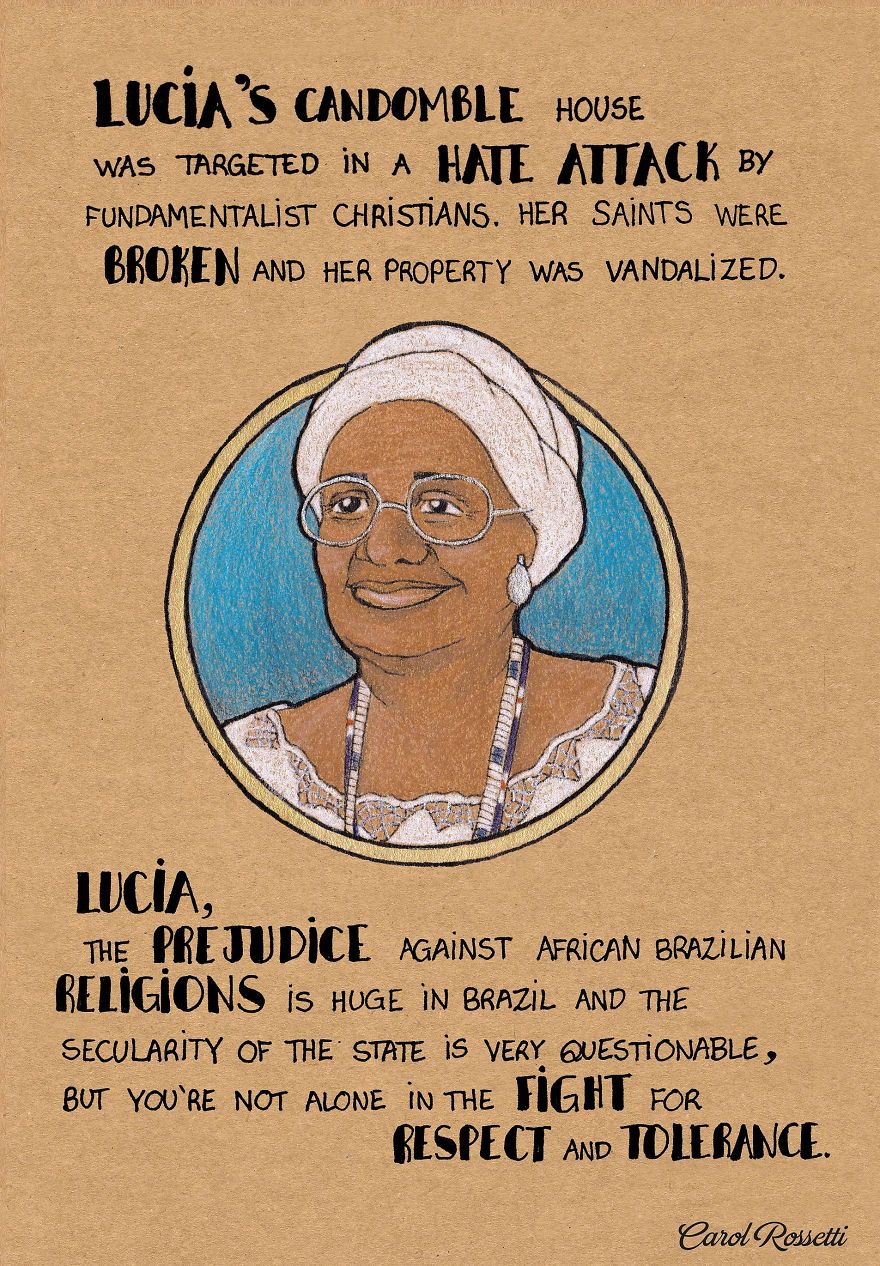 LUCiA'S CANDOMBLE HOUSE
WAS TARGETED iN A HATE ATTACK BY
FUNDAMENTALiST CHRiSTiANS. HER SAiNTS WERE
BROKEN AND HER PROPERTY WAS VANDALiZED.
LUCiA,
THE PREJUDiCE AGAiNST AFRiCAN BRAZiLiAN
RELiGiONS iS HUGE iN BRAZiL AND THE
SECULARiTY OF THE STATE iS VERY QUESTiONABLE,
BUT YOU'RE NOT ALONE iN THE FiGHT FOR
RESPECT AND TOLERANCE.
Carol Rossetti